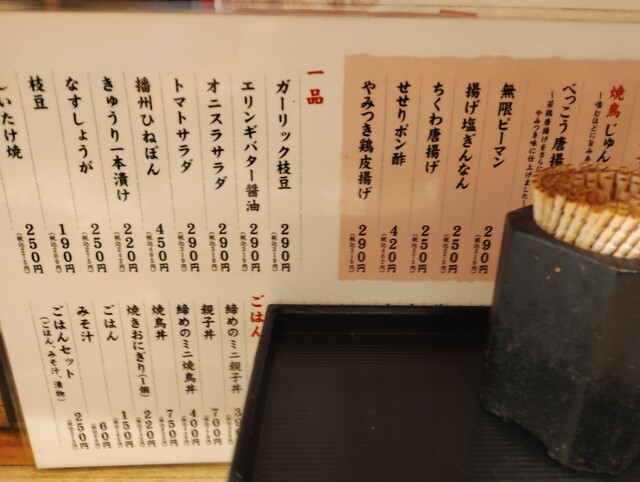 焼鳥じゅん
べっこう唐揚
無限ピーマン 290円
揚げ塩ぎんなん 250円
ちくわ唐揚げ 250円
せせりポン酢 420円
やみつき鶏皮揚げ 290円
一品
ガーリック枝豆 290円
エリンギバター醤油 290円
オニスラサラダ 290円
トマトサラダ 290円
播州ひねぽん 450円
きゅうり一本漬け 220円
なすしょうが 250円
枝豆 190円
いたけ焼 250円
ごはん
締めのミニ親子丼
親子丼 700円
締めのミニ焼鳥丼 400円
焼鳥丼 750円
焼きおにぎり(1個) 220円
ごはん 150円
みそ汁 60円
ごはんセット 250円
(ごはん、みそ汁、漬物)